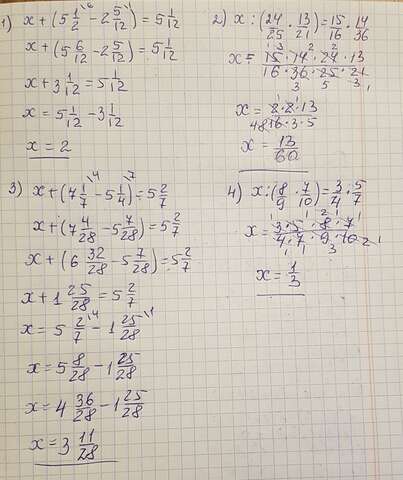 1) x + (5 1/2 \6 − 2 5/12 \1) = 5 1/12
x + (5 6/12 − 2 5/12) = 5 1/12
x + 3 1/12 = 5 1/12
x = 5 1/12 − 3 1/12
x = 2
2) x : (24/25 · 13/21) = 15/16 · 14/36
x = 15 · 14 · 24 · 13 / 16 · 36 · 25 · 21
x = 13/60
3) x + (7 1/7 \4 − 5 1/4 \7) = 5 2/7
x + (7 4/28 − 5 7/28) = 5 2/7
x + (6 32/28 − 5 7/28) = 5 2/7
x + 1 25/28 = 5 2/7
x = 5 2/7 \4 − 1 25/28 \1
x = 5 8/28 − 1 25/28
x = 4 36/28 − 1 25/28
x = 3 11/28
4) x : (8/9 · 7/10) = 3/4 · 5/7
x = 3 · 5 · 8 · 7 / 4 · 7 · 9 · 10
x = 1/3